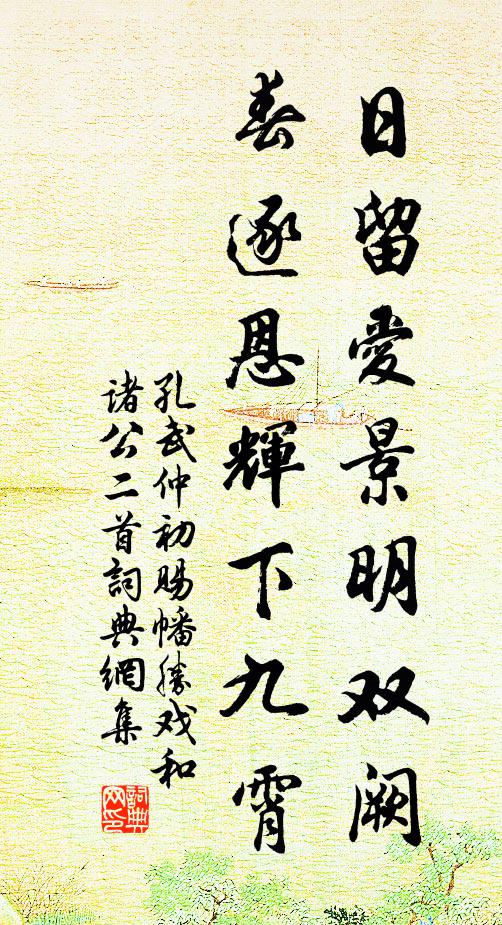 日留愛景明双阙
春逐恩輝下九霄
孔武仲初赐幡胜戏和
诸公二首詞典網集
詞典网印